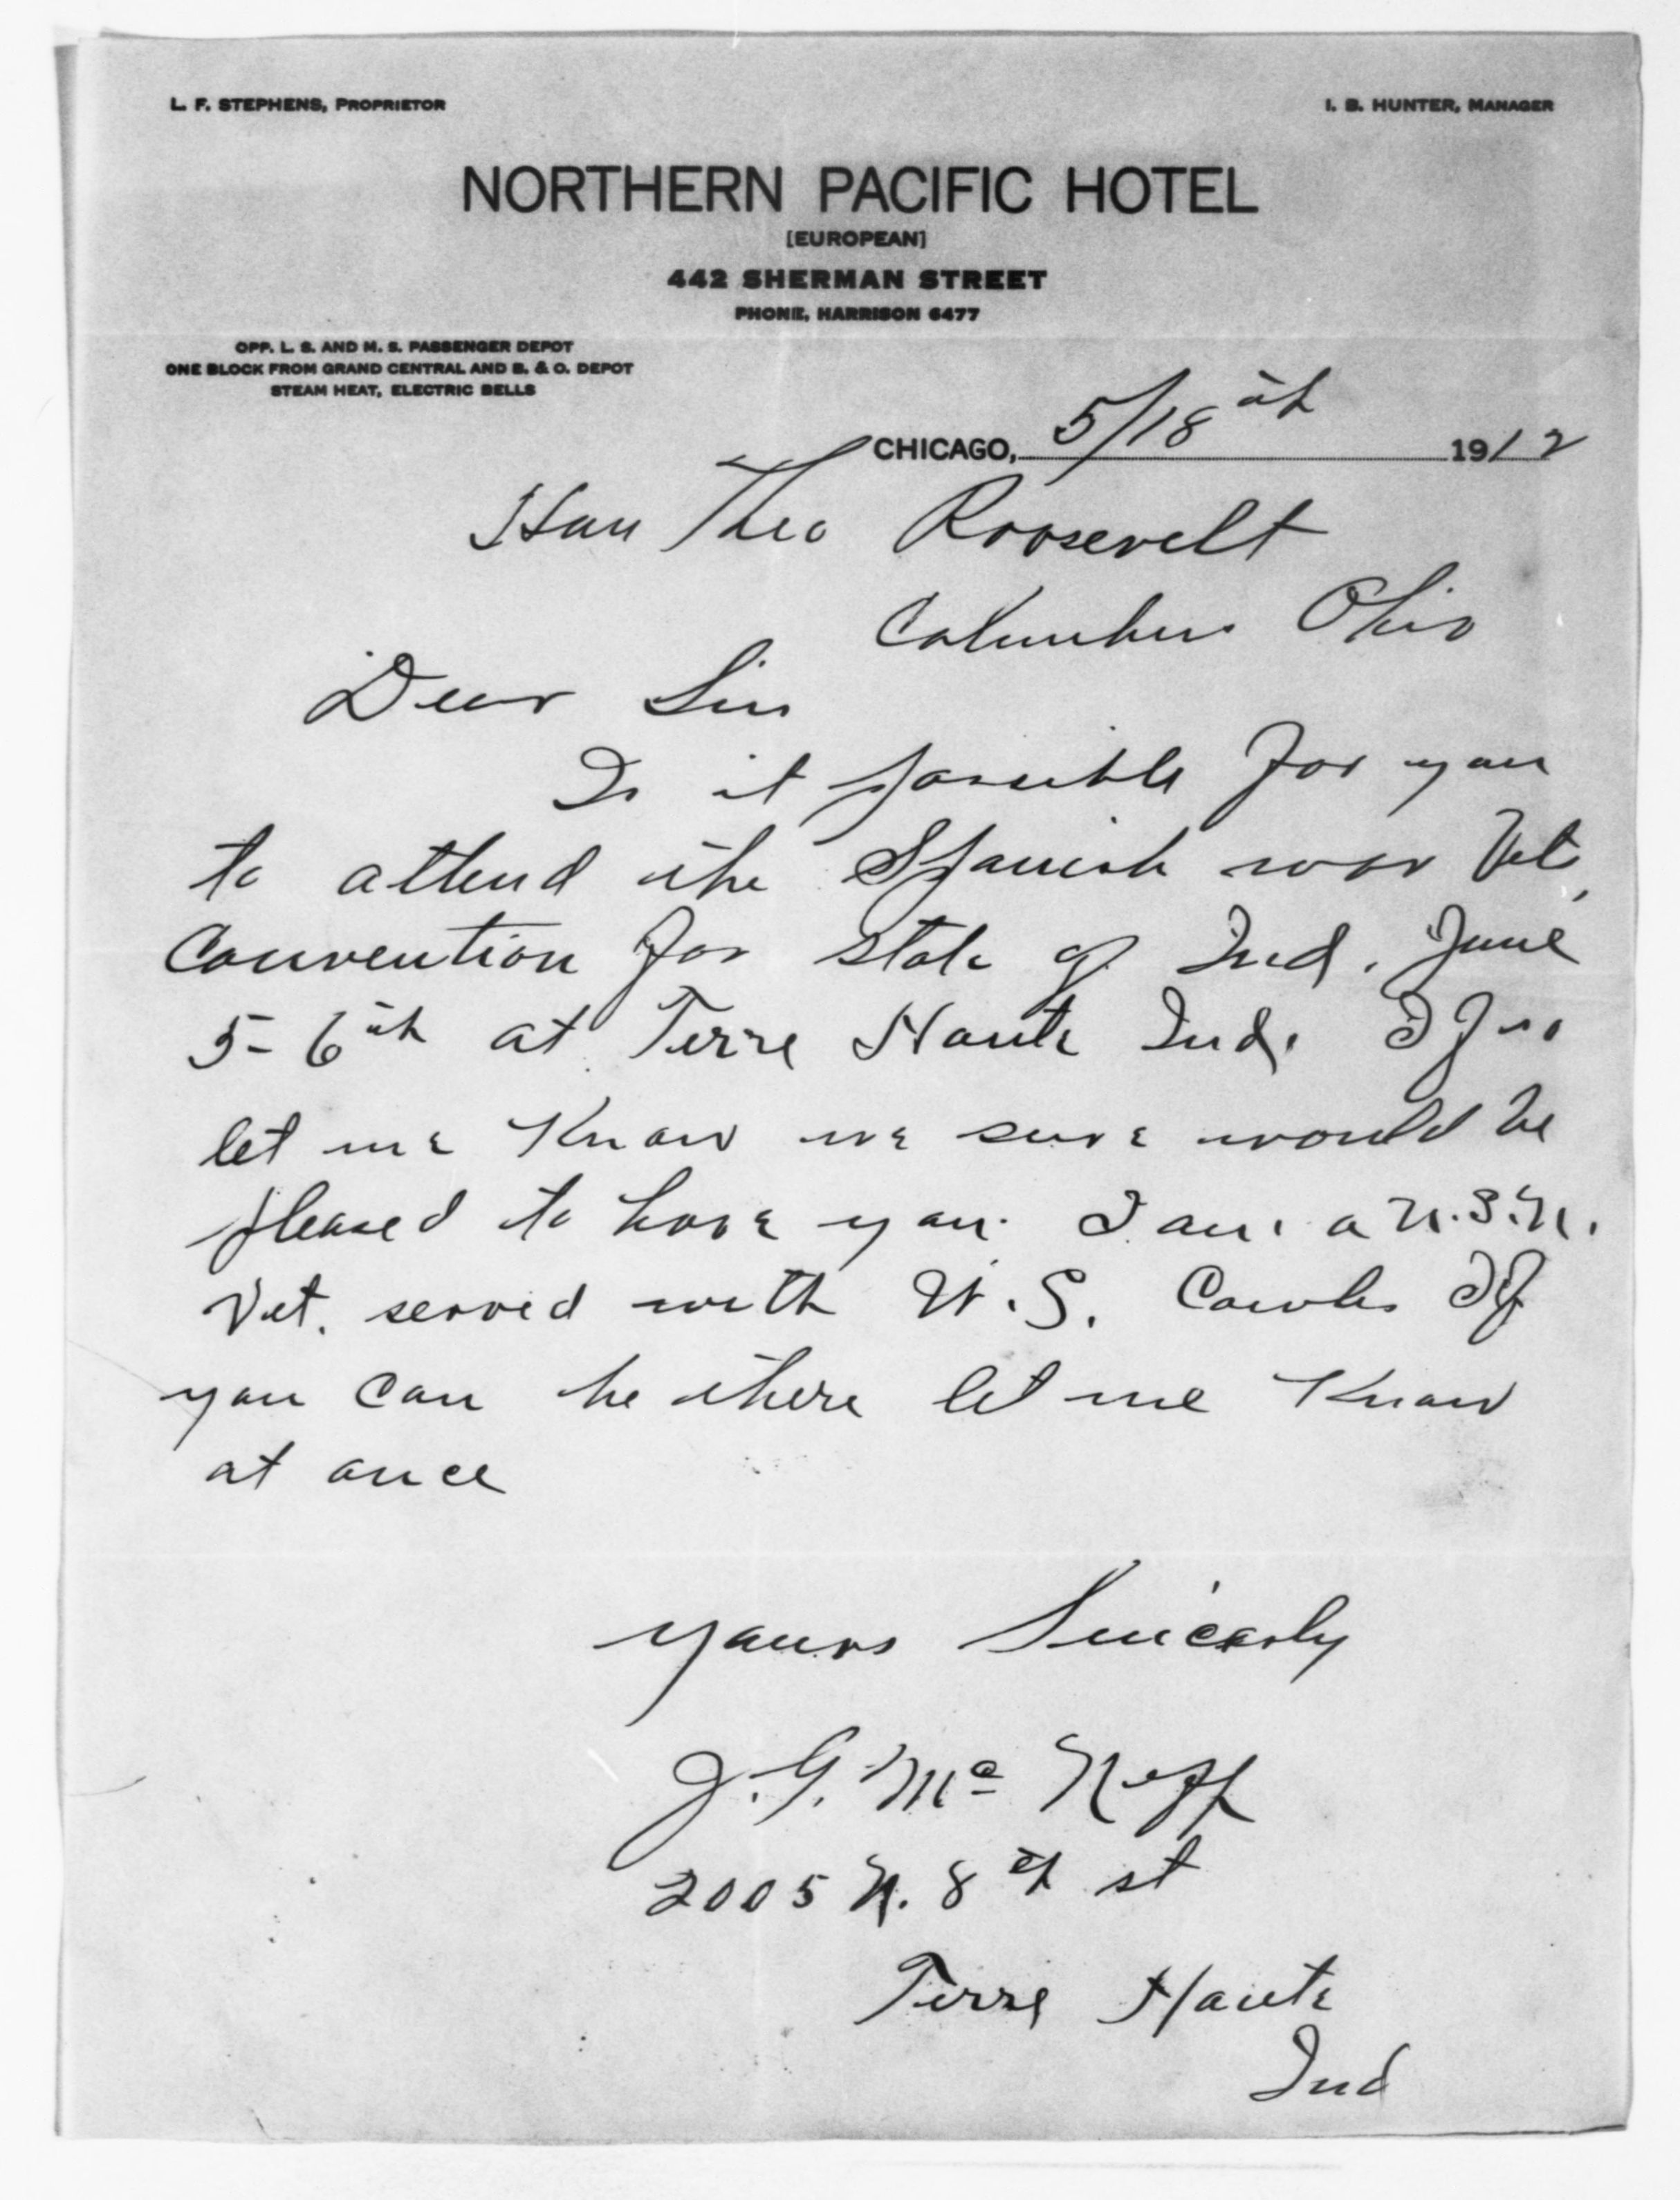 L. F. STEPHENS, PROPRIETOR
I. B. HUNTER, MANAGER
NORTHERN PACIFIC HOTEL
[EUROPEAN]
442 SHERMAN STREET
PHONE, HARRISON 6477
OPP. L. S. AND M. S. PASSENGER DEPOT
ONE BLOCK FROM GRAND CENTRAL AND B. & O. DEPOT
STEAM HEAT, ELECTRIC BELLS
CHICAGO, 5/18th 1912
Hon Theo Roosevelt
Columbus Ohio
Dear Sir
Is it possible for you
to attend the Spanish war Vets,
Convention for state of Ind. June
5-6th at Terre Haute Ind. If so
let me Know we sure would be
pleased to have you. I am a U.S.N.
Vet. served with W.S. Cowles If
you can be there let me Know
at once
yours Sincerly
J.G. Mc Neff
2005 N. 8th st
Terre Haute
Ind